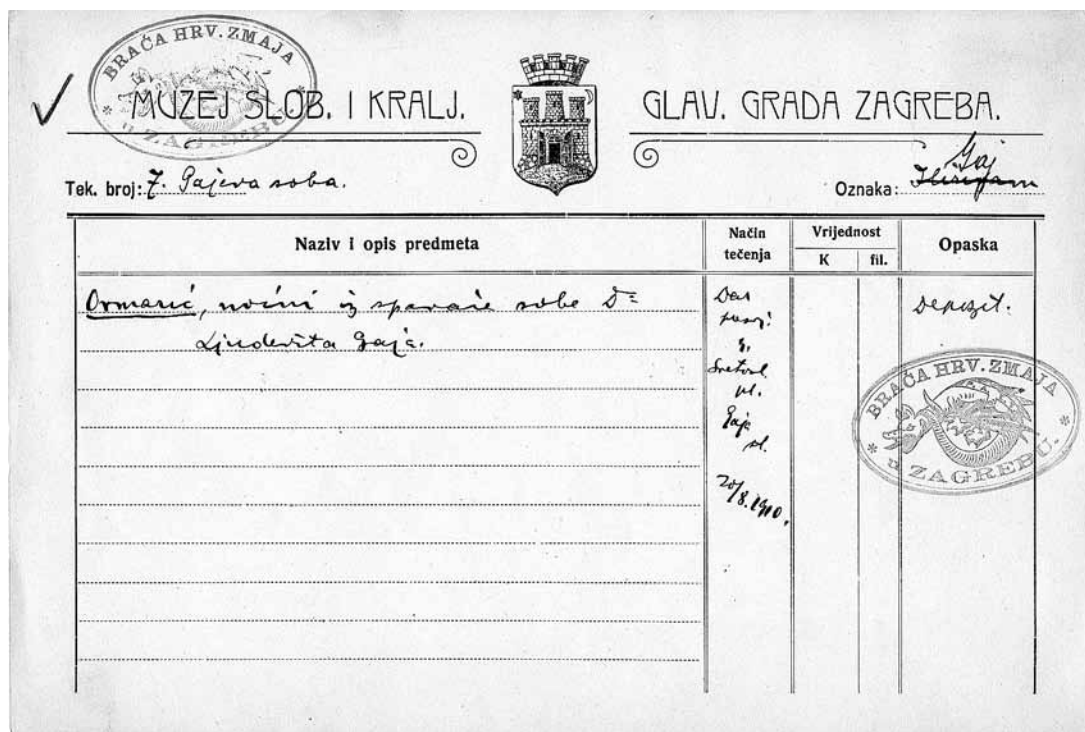 BRAĆA HRV. ZMAJA
u ZAGREBU.
MUZEJ SLOB. I KRALJ. GLAV. GRADA ZAGREBA.
Tek. broj: 7. Gajeva soba.
Gaj
Oznaka:
Naziv i opis predmeta
Način tečenja
Vrijednost
K fil.
Opaska
Ormarić, noćni iz spavaće sobe Dr
Ljudevita Gaja.
Dar
g.
Svetosl.
pl.
Gaja
ml.
20/8. 1910.
Depozit.
BRAĆA HRV. ZMAJA
u ZAGREBU.